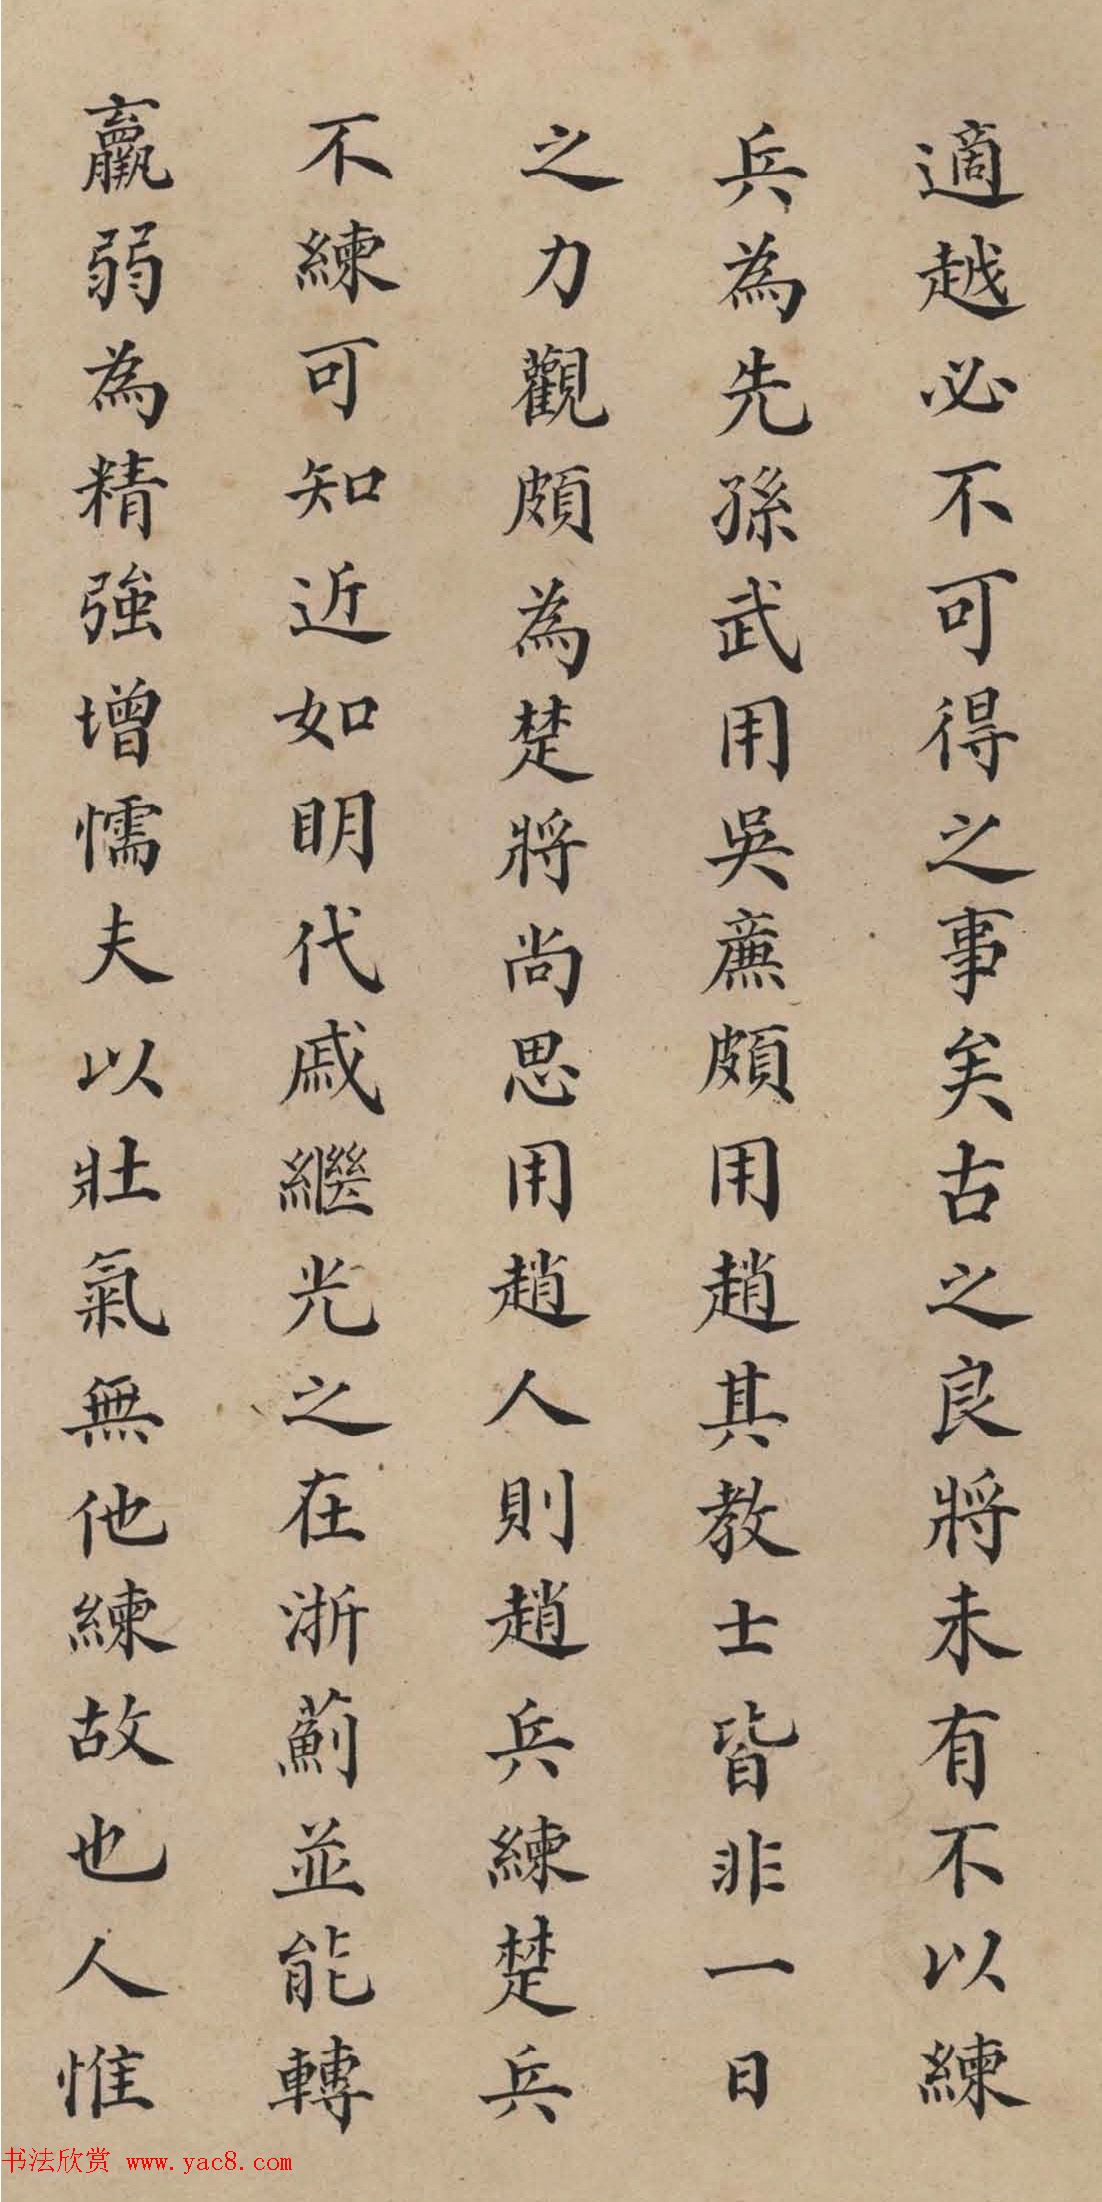 適越必不可得之事矣古之良將未有不以練
兵為先孫武用吳廉頗用趙其教士皆非一日
之力觀頗為楚將尚思用趙人則趙兵練楚兵
不練可知近如明代戚繼光之在浙薊並能轉
羸弱為精強增懦夫以壯氣無他練故也人惟
书法欣赏 www.yac8.com